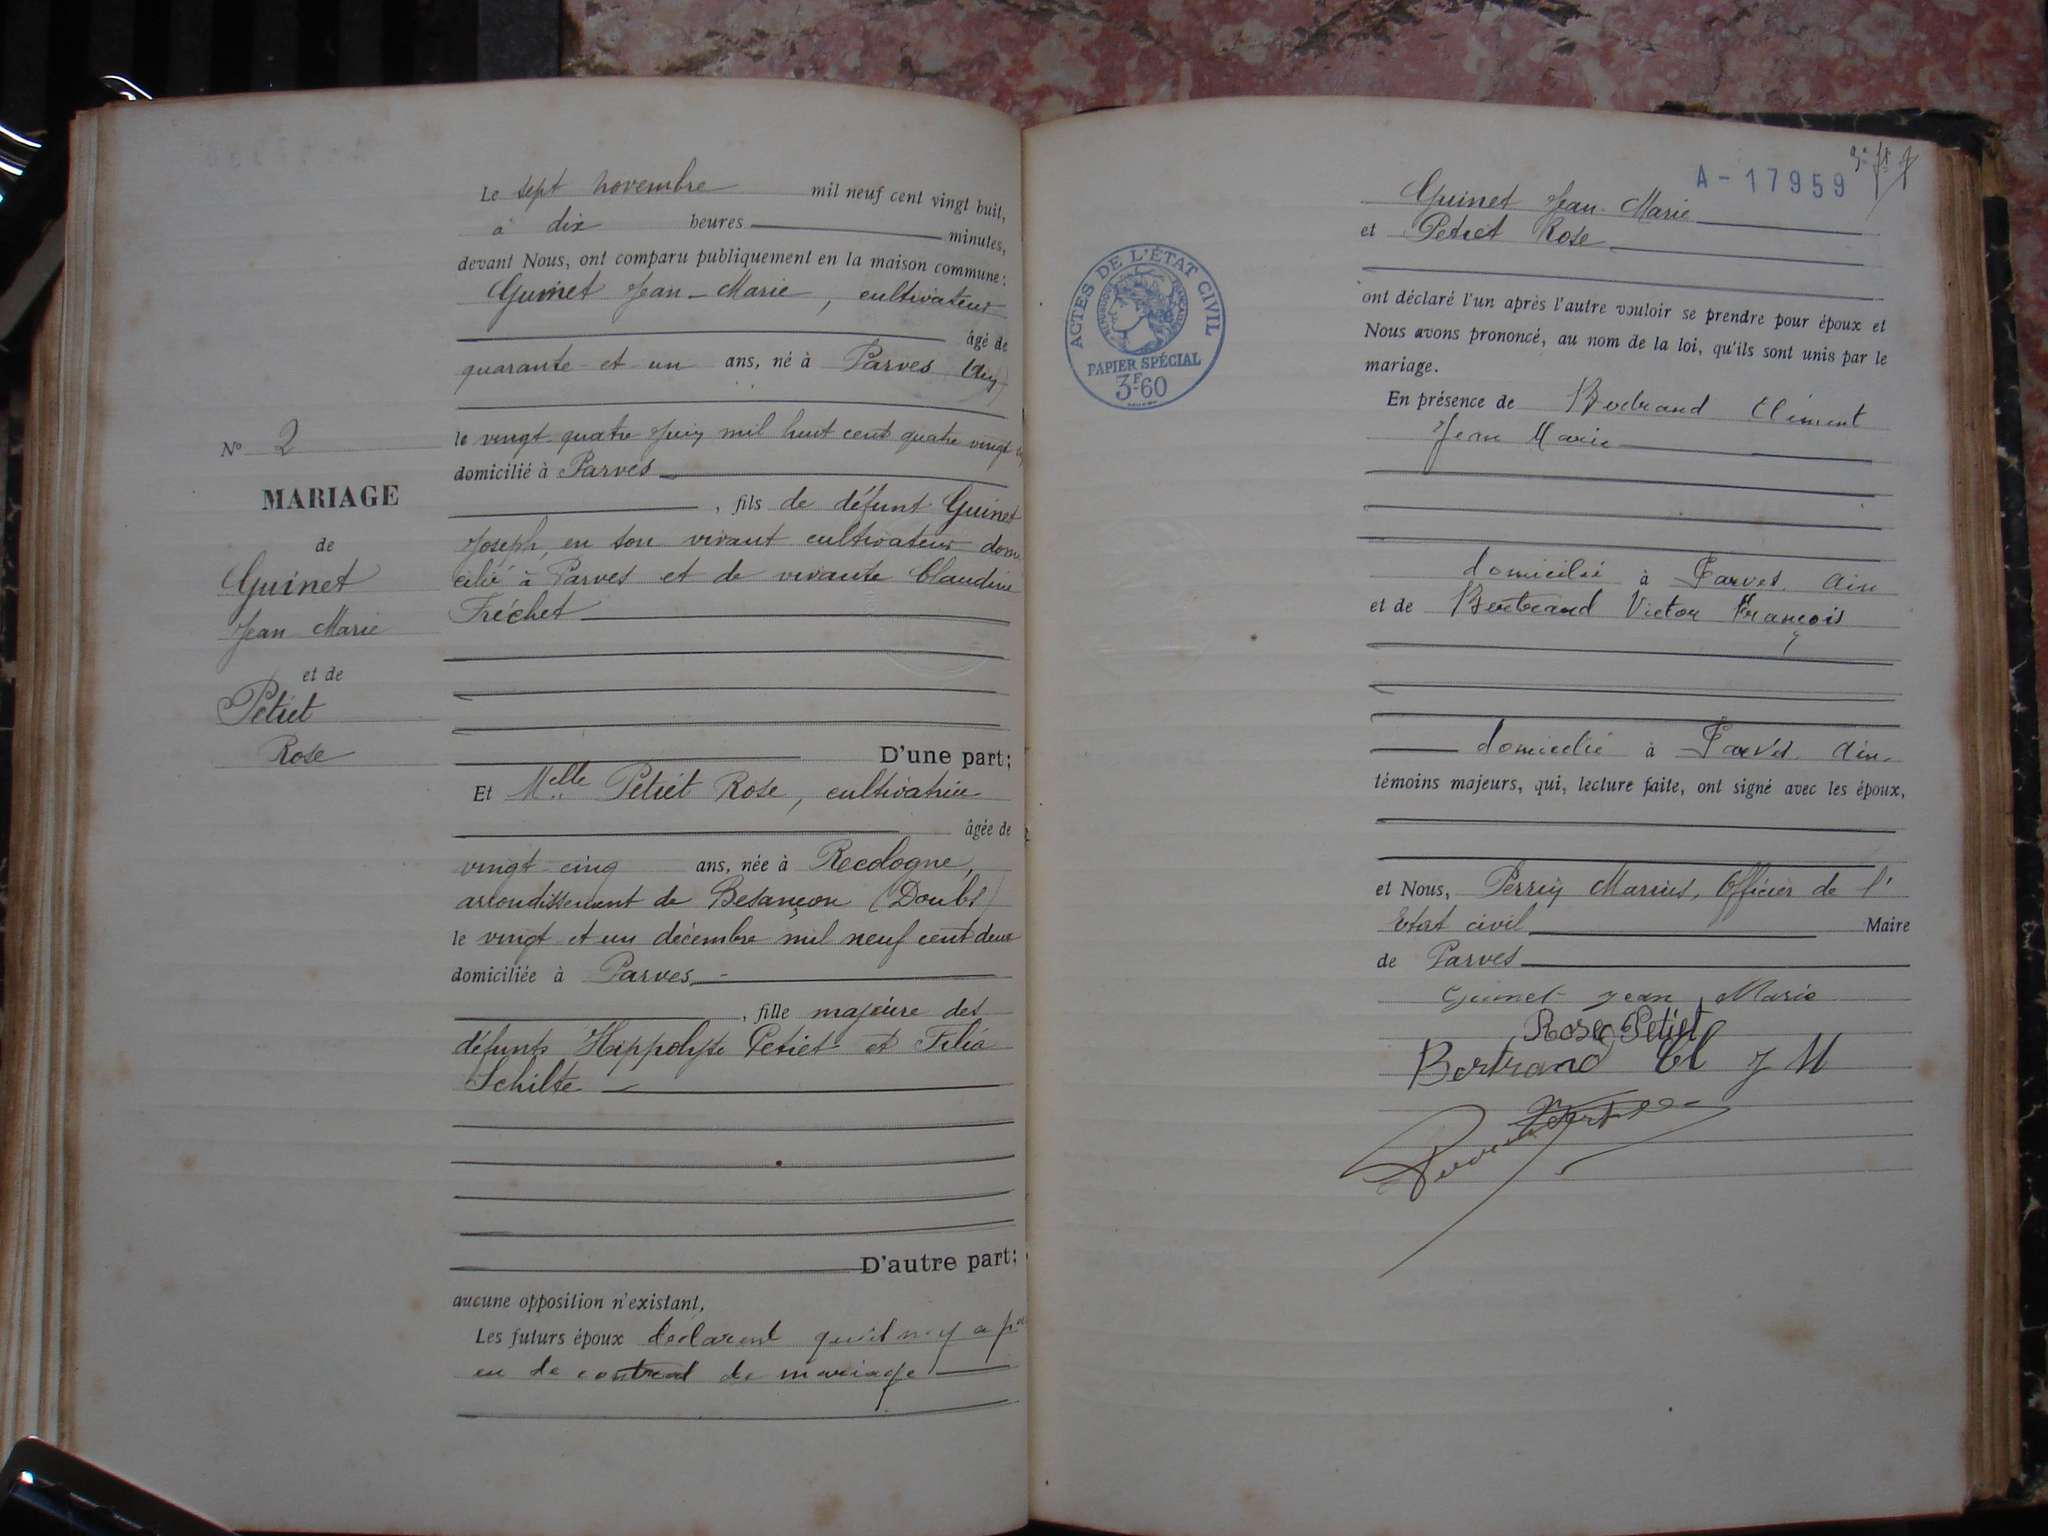 Le sept novembre mil neuf cent vingt huit,
à dix heures minutes,
devant Nous, ont comparu publiquement en la maison commune:
Guinet Jean-Marie, cultivateur
âgé de
quarante et un ans, né à Parves (Ain)
le vingt quatre Juin mil huit cent quatre vingt
domicilié à Parves
, fils de défunt Guinet
Joseph, en son vivant cultivateur domi
cilié à Parves et de vivante Claudine
Fréchet
D'une part;
Et Melle Petiet Rose, cultivatrice
âgée de
vingt cinq ans, née à Recologne,
arrondissement de Besançon (Doubs)
le vingt et un décembre mil neuf cent deux
domiciliée à Parves
, fille majeure des
défunts Hippolyte Petiet et Filia
Schilte
D'autre part;
aucune opposition n'existant,
Les futurs époux déclarent qu'il n'y a pas
eu de contrat de mariage
N° 2
MARIAGE
de
Guinet
Jean Marie
et de
Petiet
Rose
A-17959
Guinet Jean-Marie
et Petiet Rose
ACTES DE L'ÉTAT CIVIL
RÉPUBLIQUE FRANÇAISE
PAPIER SPÉCIAL
3F60
ont déclaré l'un après l'autre vouloir se prendre pour époux et
Nous avons prononcé, au nom de la loi, qu'ils sont unis par le
mariage.
En présence de Bertrand Clément
Jean Marie
domicilié à Parves Ain
et de Bertrand Victor François
domicilié à Parves Ain
témoins majeurs, qui, lecture faite, ont signé avec les époux,
et Nous, Perrin Marius, Officier de l'
Etat civil Maire
de Parves
Guinet Jean Marie
Rose Petiet
Bertrand Cl J M